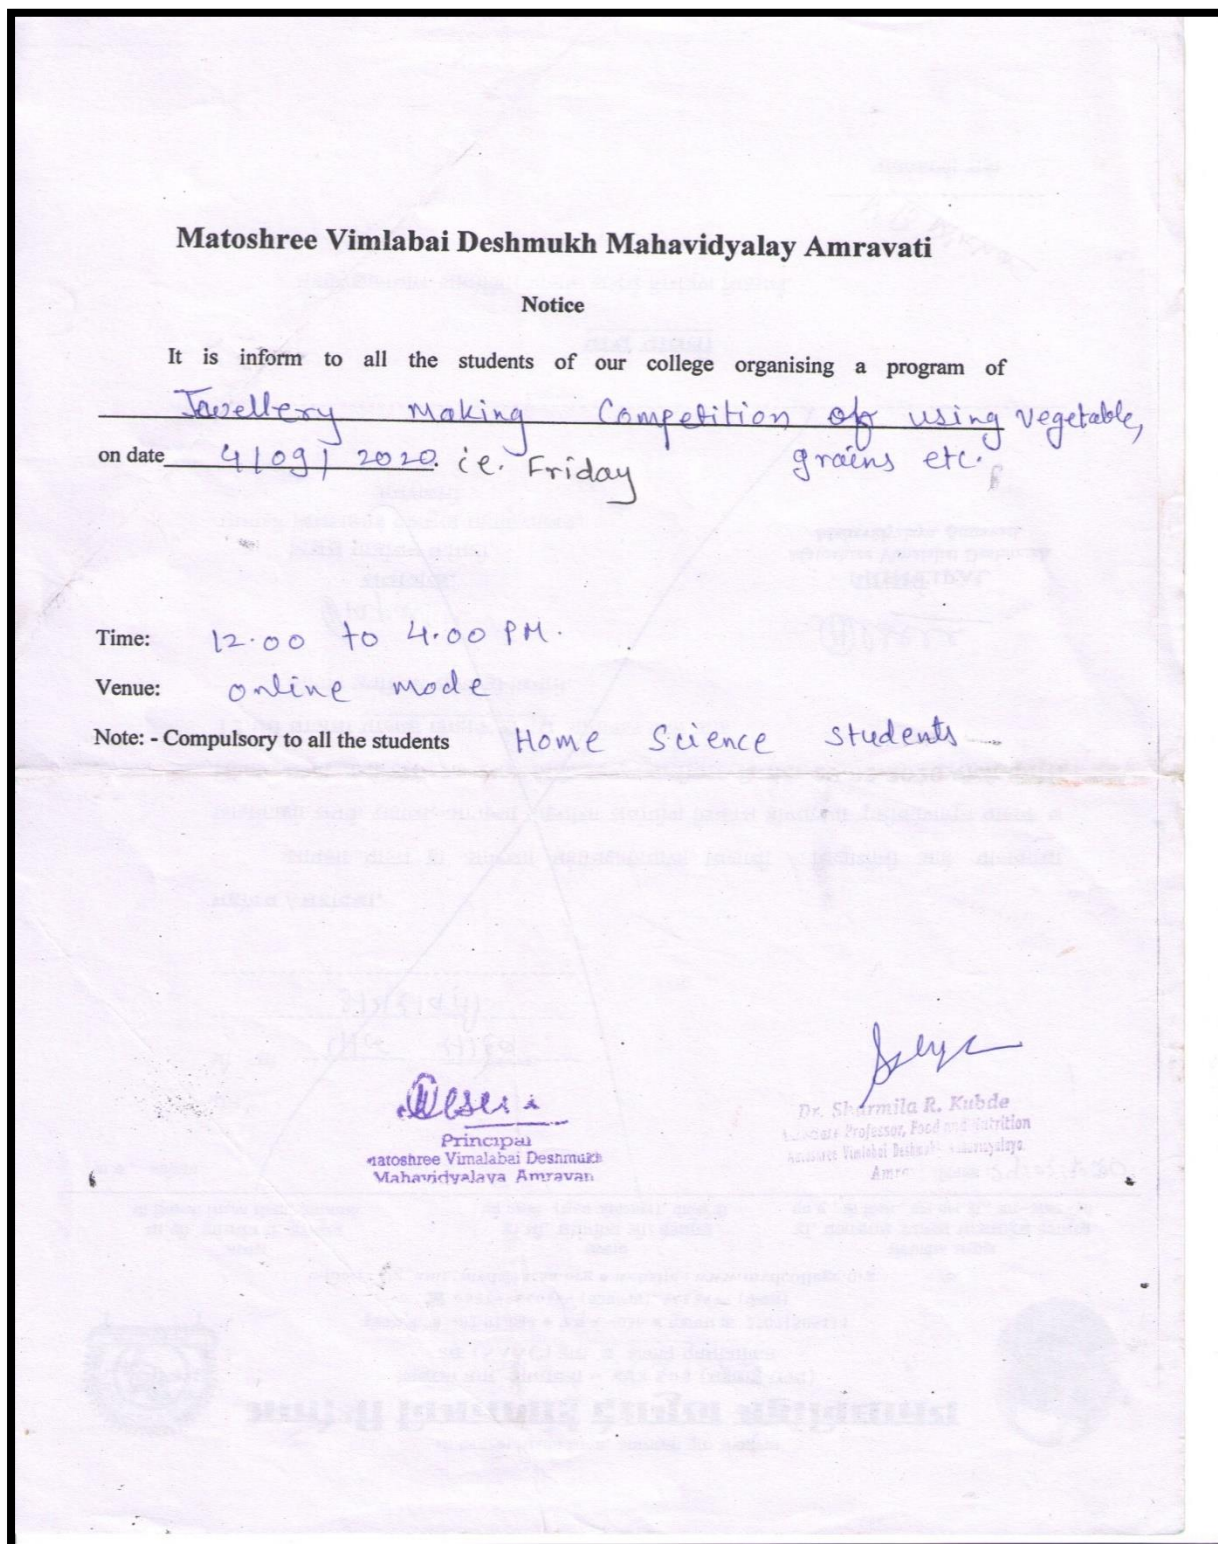 Matoshree Vimlabai Deshmukh Mahavidyalay Amravati
Notice
It is inform to all the students of our college organising a program of
Jewellery Making Competition of using vegetable,
on date 4/09/2020. i.e. Friday grains etc.
Time: 12.00 to 4.00 PM.
Venue: online mode
Note: - Compulsory to all the students Home Science students
Principal
Matoshree Vimalabai Deshmukh
Mahavidyalaya Amravati
Dr. Sharmila R. Kubde
Professor, Food and Nutrition
Vimlabai